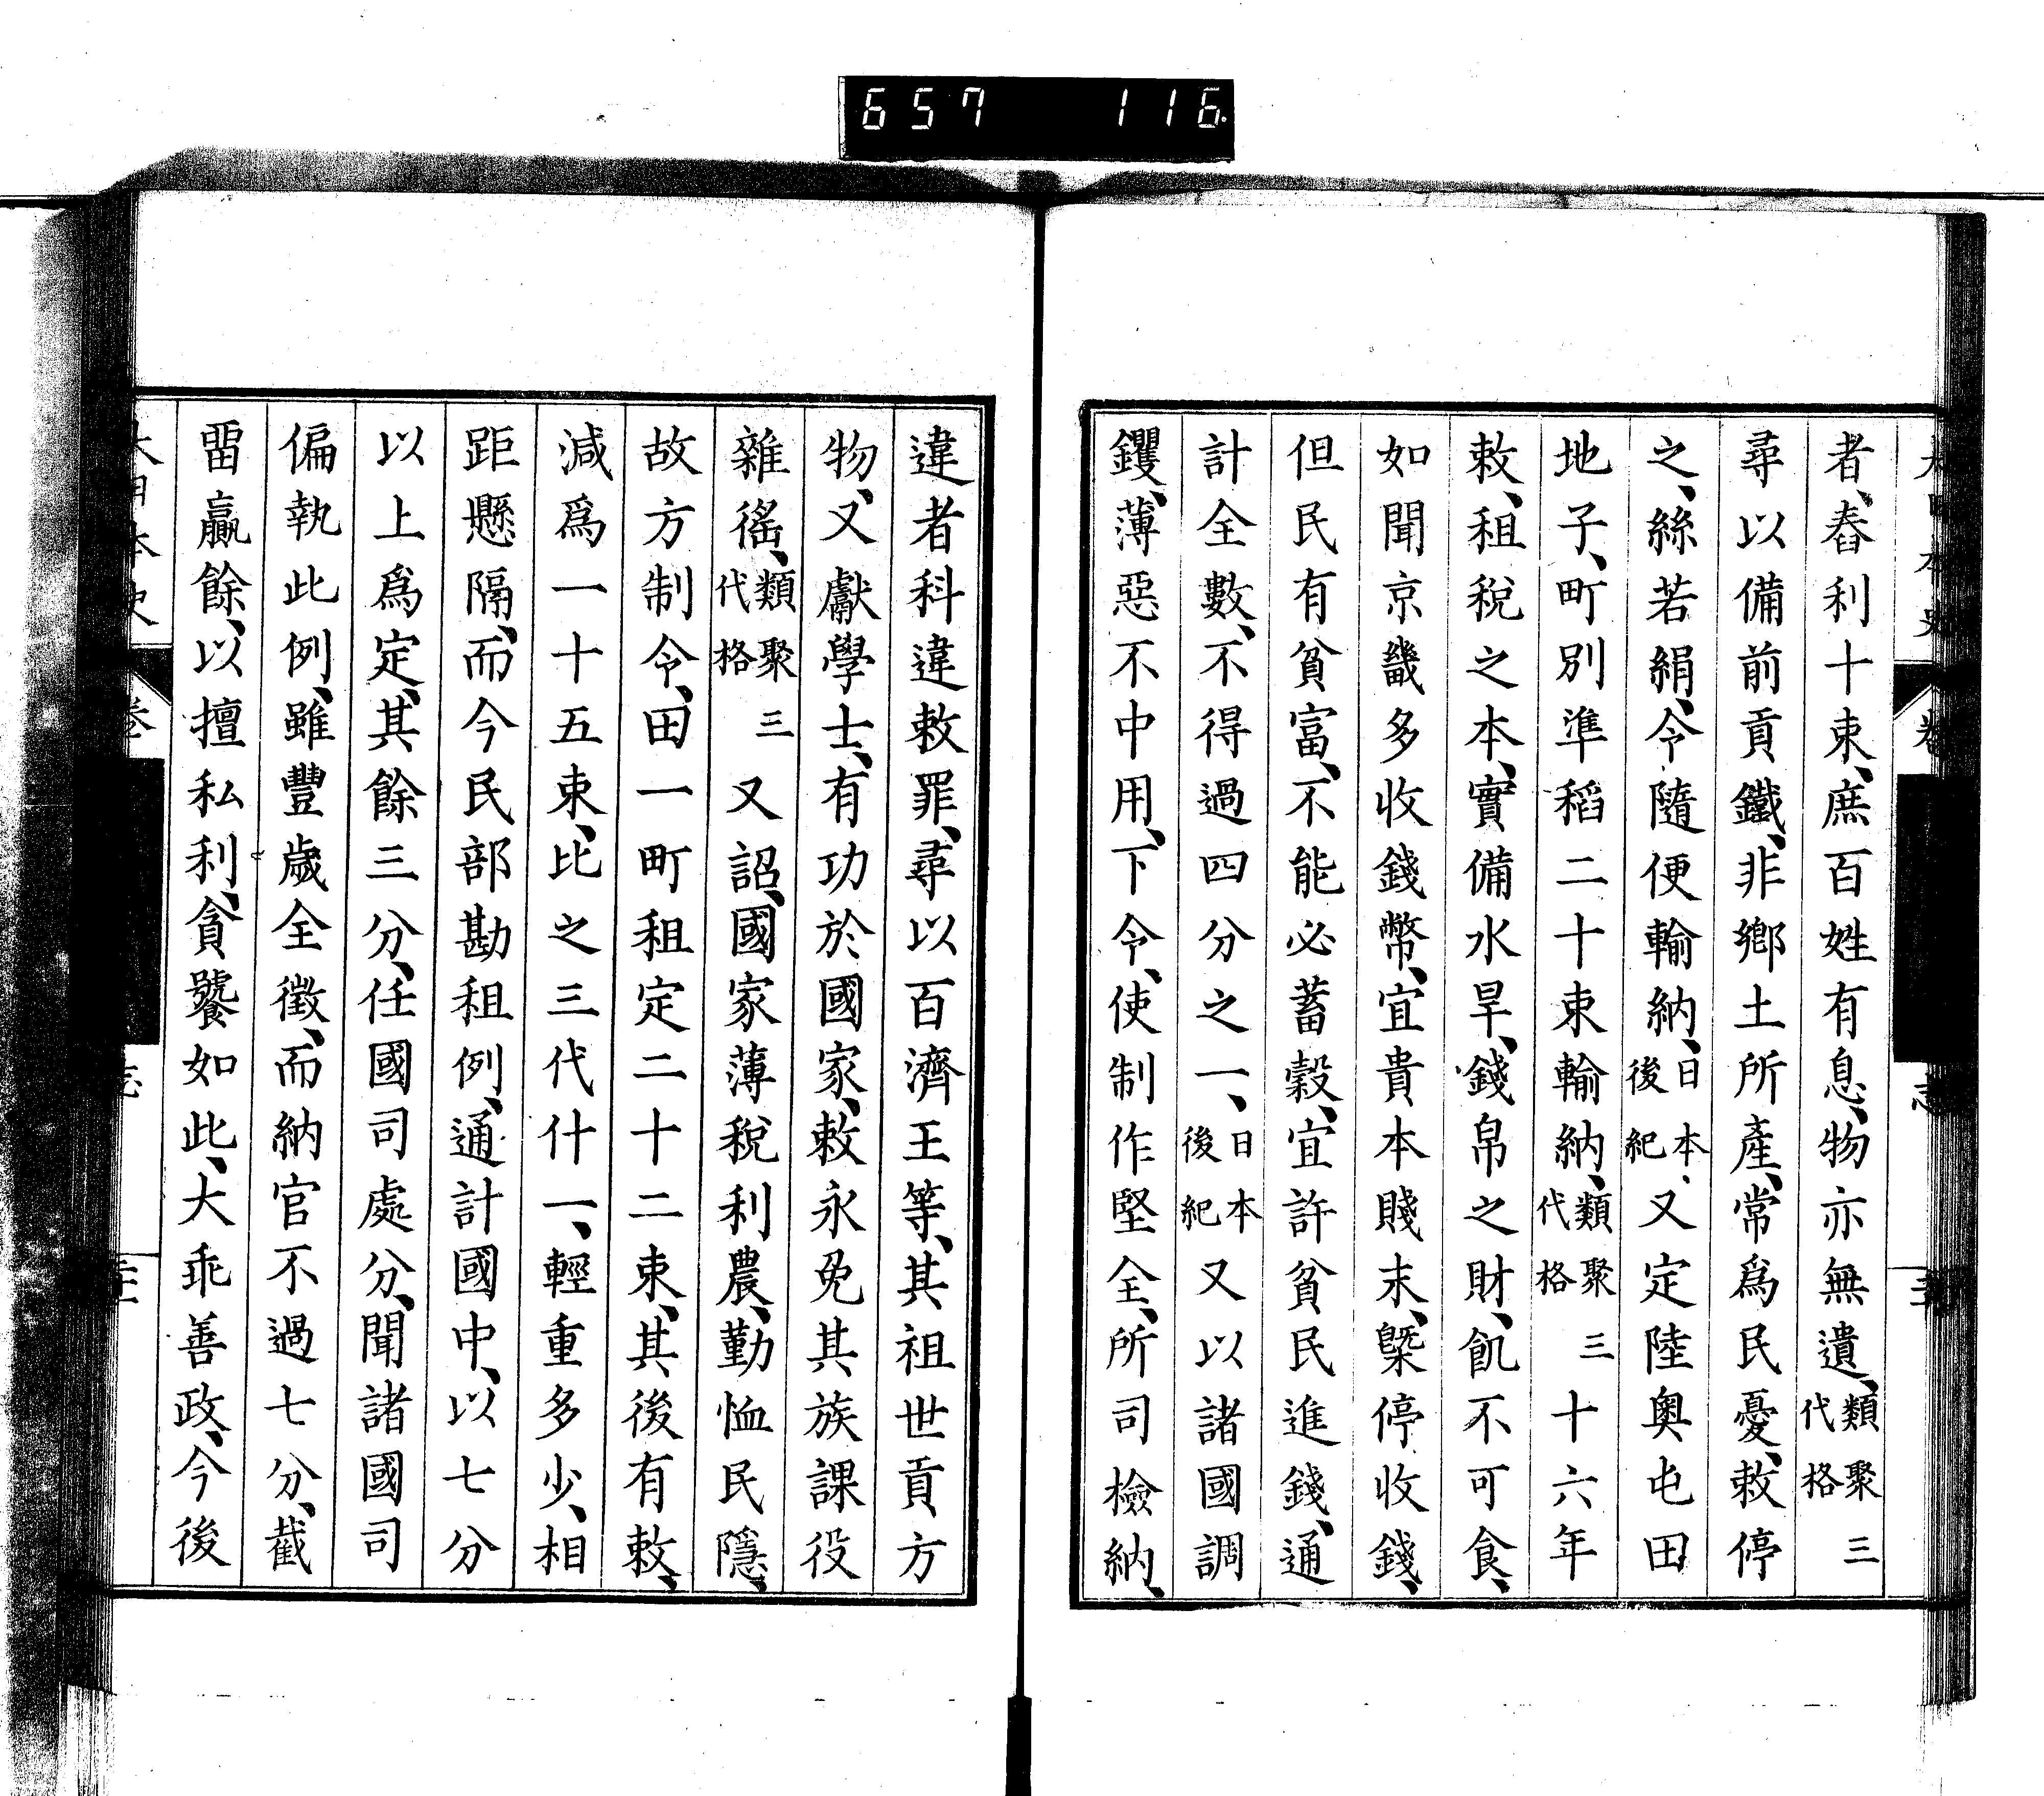 657 116
者、舂利十束、庶百姓有息、物亦無遺、類聚三代格
尋以備前貢鐵、非鄉土所產、常爲民憂、敕停
之、絲若絹、令隨便輸納、日本後紀又定陸奥屯田
地子、町別準稻二十束輸納、類聚三代格十六年
敕、租稅之本、實備水旱、錢帛之財、飢不可食、
如聞京畿多收錢幣、宜貴本賤末、槩停收錢、
但民有貧富、不能必蓄穀、宜許貧民進錢、通
計全數、不得過四分之一、日本後紀又以諸國調
钁、薄惡不中用、下令、使制作堅全、所司檢納、
違者科違敕罪、尋以百濟王等、其祖世貢方
物、又獻學士、有功於國家、敕永免其族課役
雜徭、類聚三代格又詔、國家薄稅利農、勤恤民隱、
故方制令、田一町租定二十二束、其後有敕、
減爲一十五束、比之三代什一、輕重多少、相
距懸隔、而今民部勘租例、通計國中、以七分
以上爲定、其餘三分、任國司處分、聞諸國司
偏執此例、雖豐歲全徵、而納官不過七分、截
畱贏餘、以擅私利、貪饕如此、大乖善政、今後